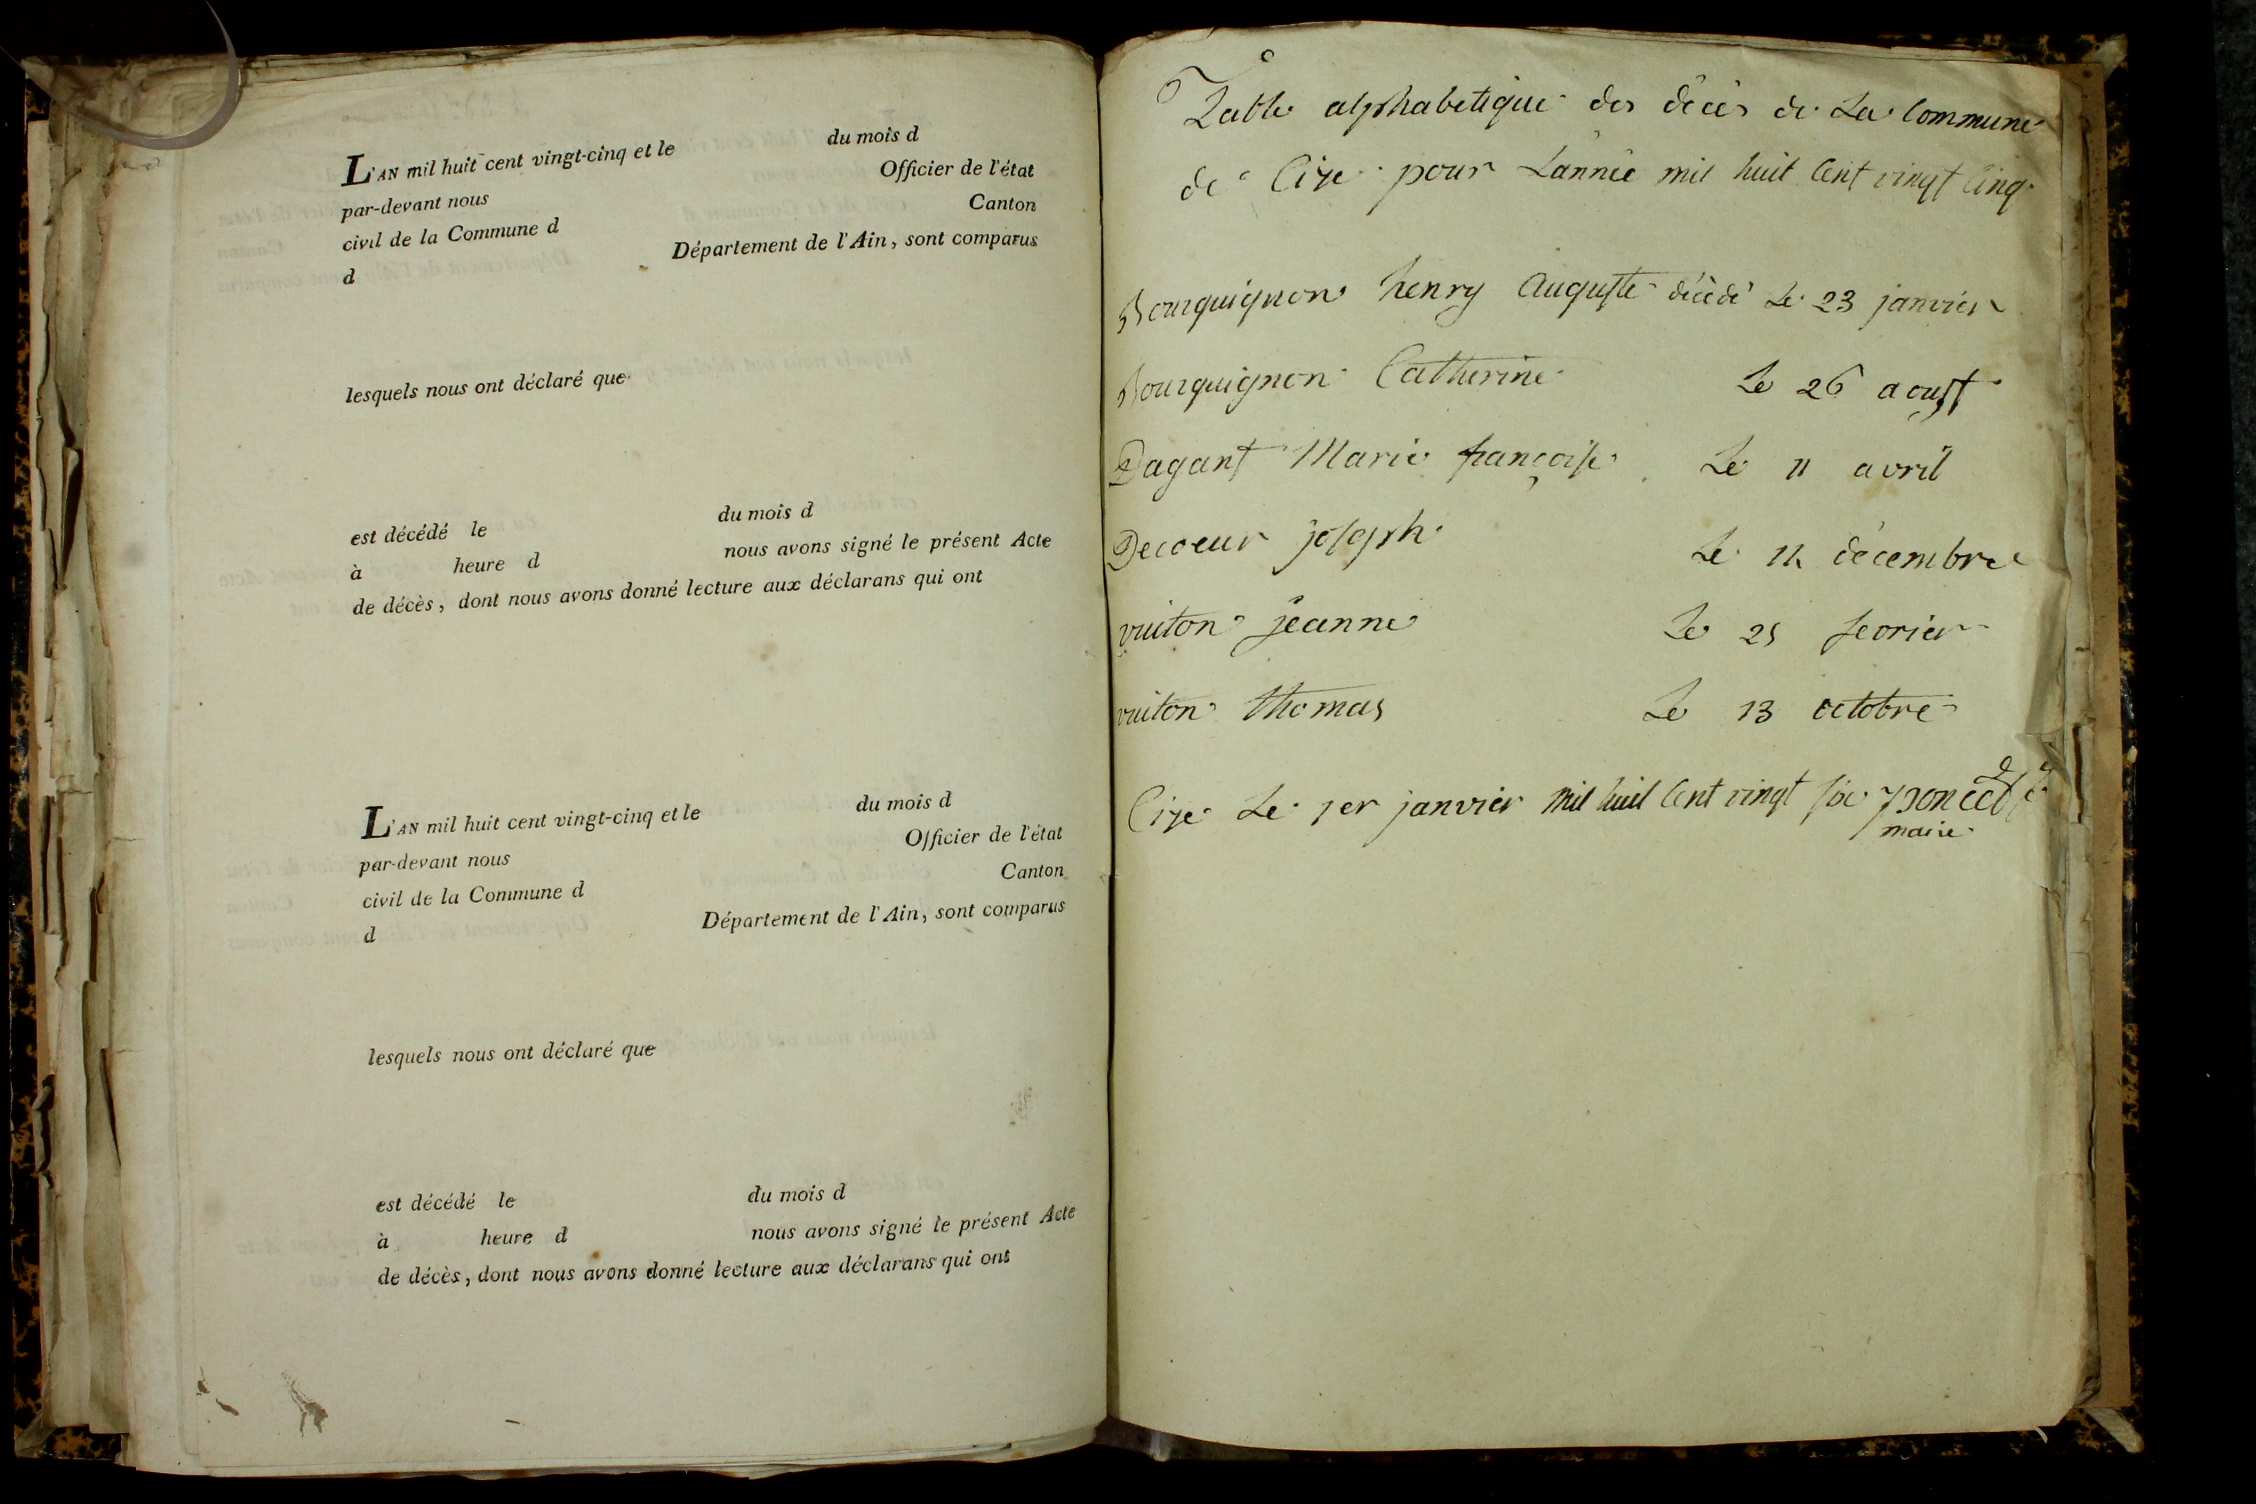 L'AN mil huit cent vingt-cinq et le du mois d
par-devant nous Officier de l'état
civil de la Commune d Canton
d Département de l'Ain, sont comparus
lesquels nous ont déclaré que
est décédé le du mois d
à heure d nous avons signé le présent Acte
de décès, dont nous avons donné lecture aux déclarans qui ont
L'AN mil huit cent vingt-cinq et le du mois d
par-devant nous Officier de l'état
civil de la Commune d Canton
d Département de l'Ain, sont comparus
lesquels nous ont déclaré que
est décédé le du mois d
à heure d nous avons signé le présent Acte
de décès, dont nous avons donné lecture aux déclarans qui ont
Table alphabetique des décès de La Commune
de Cize pour L'année mil huit Cent vingt Cinq.
Bourguignon henry Auguste décédé Le 23 janvier
Bourguignon Catherine Le 26 aoust
Dagant Marie françoise Le 11 avril
Decoeur joseph Le 11 décembre
vuiton jeanne Le 25 fevrier
vuiton thomas Le 13 octobre
Cize Le 1er janvier mil huit Cent vingt six poncet
maire